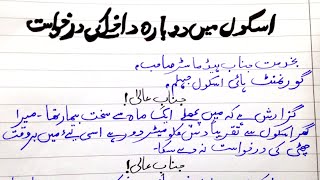 اسکول میں دوبارہ داخلے کی درخواست
بخدمت جناب ہیڈ ماسٹر صاحب،
گورنمنٹ ہائی اسکول جہلم،
جناب عالی!
گزارش ہے کہ میں پچھلے ایک ماہ سے سخت بیمار تھا۔ میرا
گھر اسکول سے تقریباً دس کلو میٹر دور ہے اسی لیے میں بروقت
چھٹی کی درخواست نہ دے سکا۔
جناب عالی!